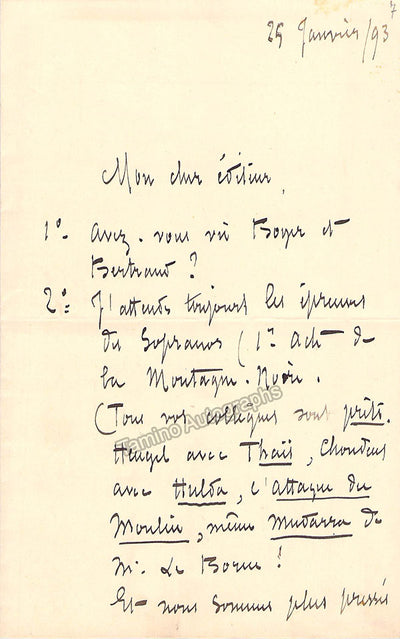 7
25 Janvier/93
Mon cher éditeur,
1º- Avez-vous vu Boyer et
Bertrand ?
2º= J'attends toujours les épreuves
des Sopranos (1er Acte de
la Montagne-Noire.
(Tous vos collègues sont prêts.
Heugel avec Thaïs, Choudens
avec Hulda, l'Attaque du
Moulin, même Mudarra de
Mr. Le Borne !
Et nous sommes plus pressés
Tamino Autographs